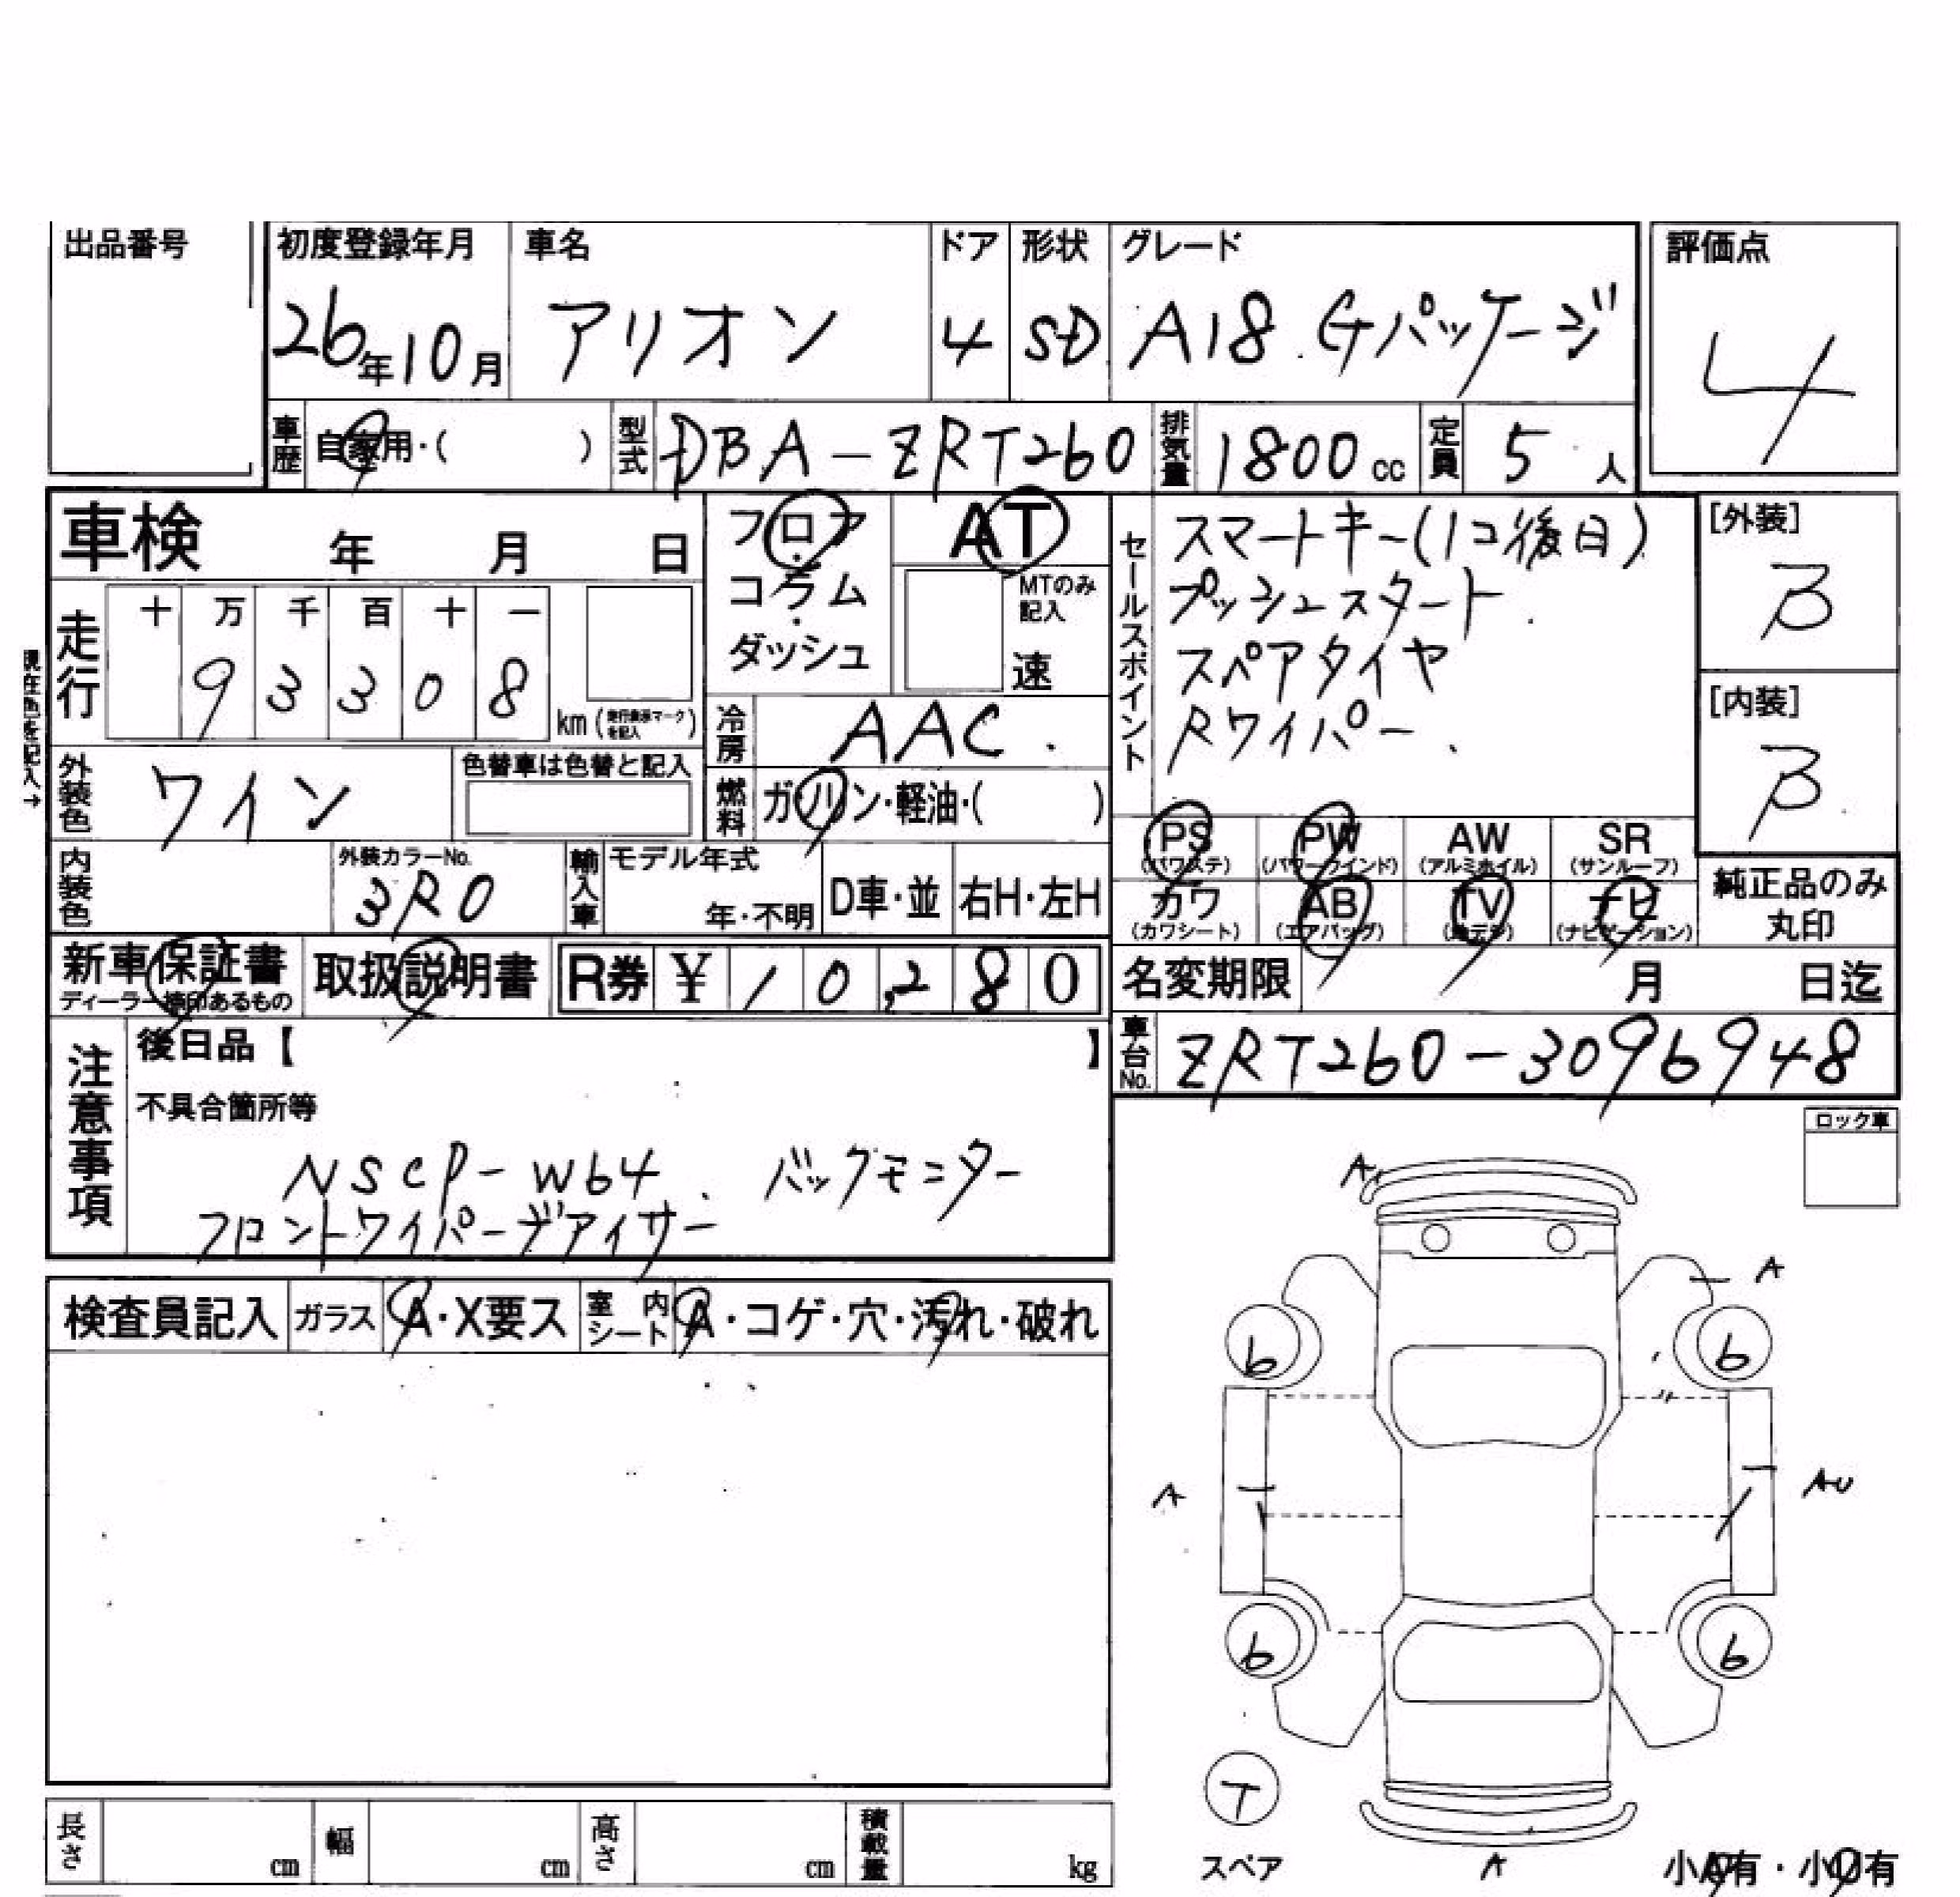 出品番号
初度登録年月 車名 ドア 形状 グレード 評価点
26年10月 アリオン 4 SD A18.Gパッケージ 4
車歴 自家用・( ) 型式 DBA-ZRT260 排気量 1800cc 定員 5人
車検 年 月 日
フロア・コラム・ダッシュ
AT
MTのみ記入
速
セールスポイント
スマートキー(1コ後日)
プッシュスタート.
スペアタイヤ
Rワイパー.
[外装]
B
[内装]
B
現在色を記入→
走行
十 万 千 百 十 一
9 3 3 0 8 km(走行表示マークを記入)
冷房 AAC.
外装色 ワイン 色替車は色替と記入
燃料 ガソリン・軽油・( )
PS (パワステ) PW (パワーウインド) AW (アルミホイル) SR (サンルーフ)
カワ (カワシート) AB (エアバッグ) TV (地デジ) ナビ (ナビゲーション)
純正品のみ
丸印
内装色 外装カラーNo. 3R0 輸入車 モデル年式 年・不明 D車・並 右H・左H
新車保証書 ディーラー捺印あるもの 取扱説明書 R券 ¥10,280
名変期限 月 日迄
車台No. ZRT260-3096948
注意事項
後日品【 】
不具合箇所等
NSCP-W64. バックモニター
フロントワイパーデアイサー
ロック車
検査員記入 ガラス A・X要ス 室内シート A・コゲ・穴・汚れ・破れ
A
A
6 6
A AU
6 6
T
スペア
A
小A有・小U有
長さ cm 幅 cm 高さ cm 積載量 kg